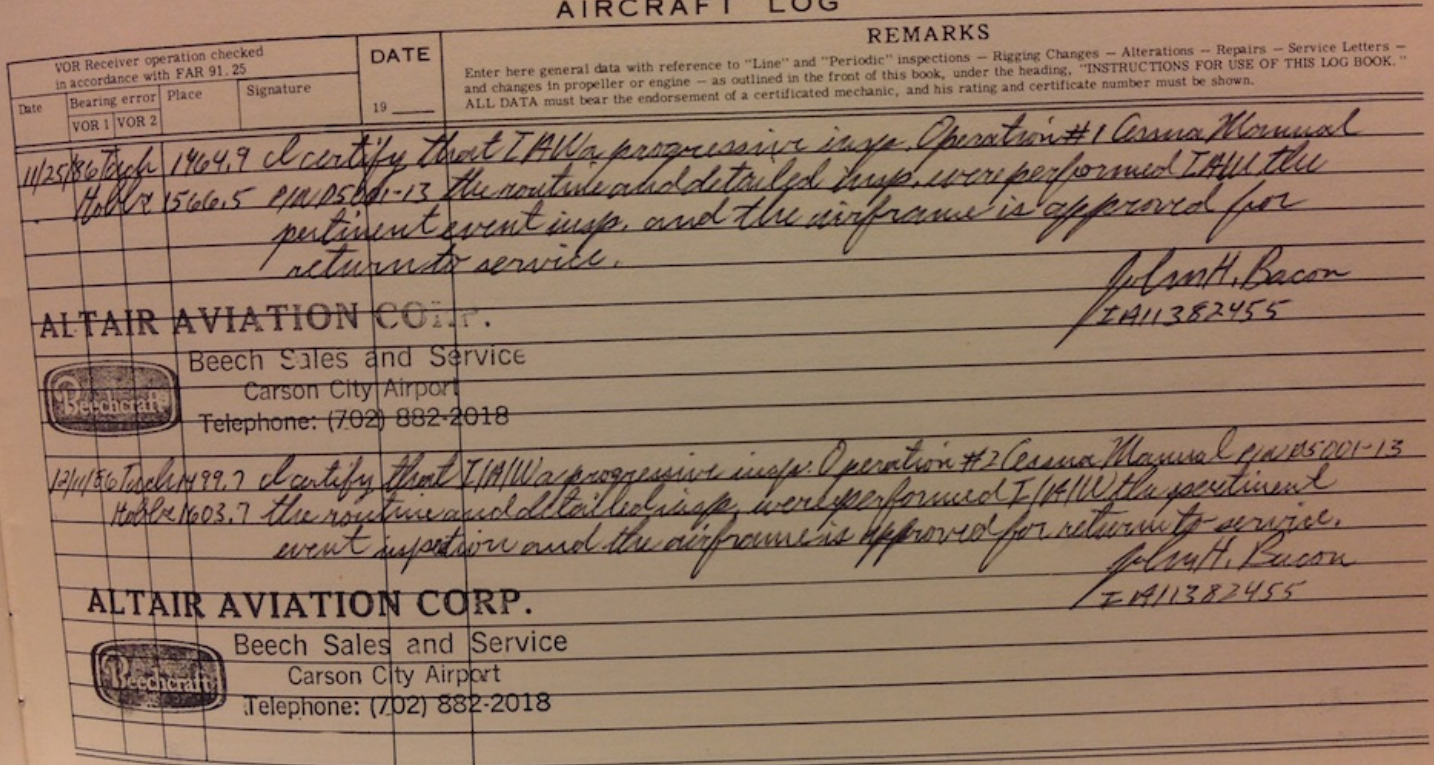 AIRCRAFT LOG
VOR Receiver operation checked
in accordance with FAR 91.25
Date
Bearing error
VOR 1 VOR 2
Place
Signature
DATE
19
REMARKS
Enter here general data with reference to "Line" and "Periodic" inspections — Rigging Changes — Alterations — Repairs — Service Letters —
and changes in propeller or engine — as outlined in the front of this book, under the heading, "INSTRUCTIONS FOR USE OF THIS LOG BOOK."
ALL DATA must bear the endorsement of a certificated mechanic, and his rating and certificate number must be shown.
11/25/86 Tach 1464.9 I certify that IAW a progressive insp. Operation #1 Cessna Manual
Hobbs 1566.5 P/N D5001-13 the routine and detailed insp. were performed IAW the
pertinent event insp. and the airframe is approved for
return to service.
John H. Bacon
IA11382455
ALTAIR AVIATION CORP.
Beechcraft
Beech Sales and Service
Carson City Airport
Telephone: (702) 882-2018
12/11/86 Tach 1499.7 I certify that I/A/W a progressive insp. Operation #2 Cessna Manual P/N D5001-13
Hobbs 1603.7 the routine and detailed insp. were performed I/A/W the pertinent
event inspetion and the airframe is approved for return to service.
John H. Bacon
IA11382455
ALTAIR AVIATION CORP.
Beechcraft
Beech Sales and Service
Carson City Airport
Telephone: (702) 882-2018